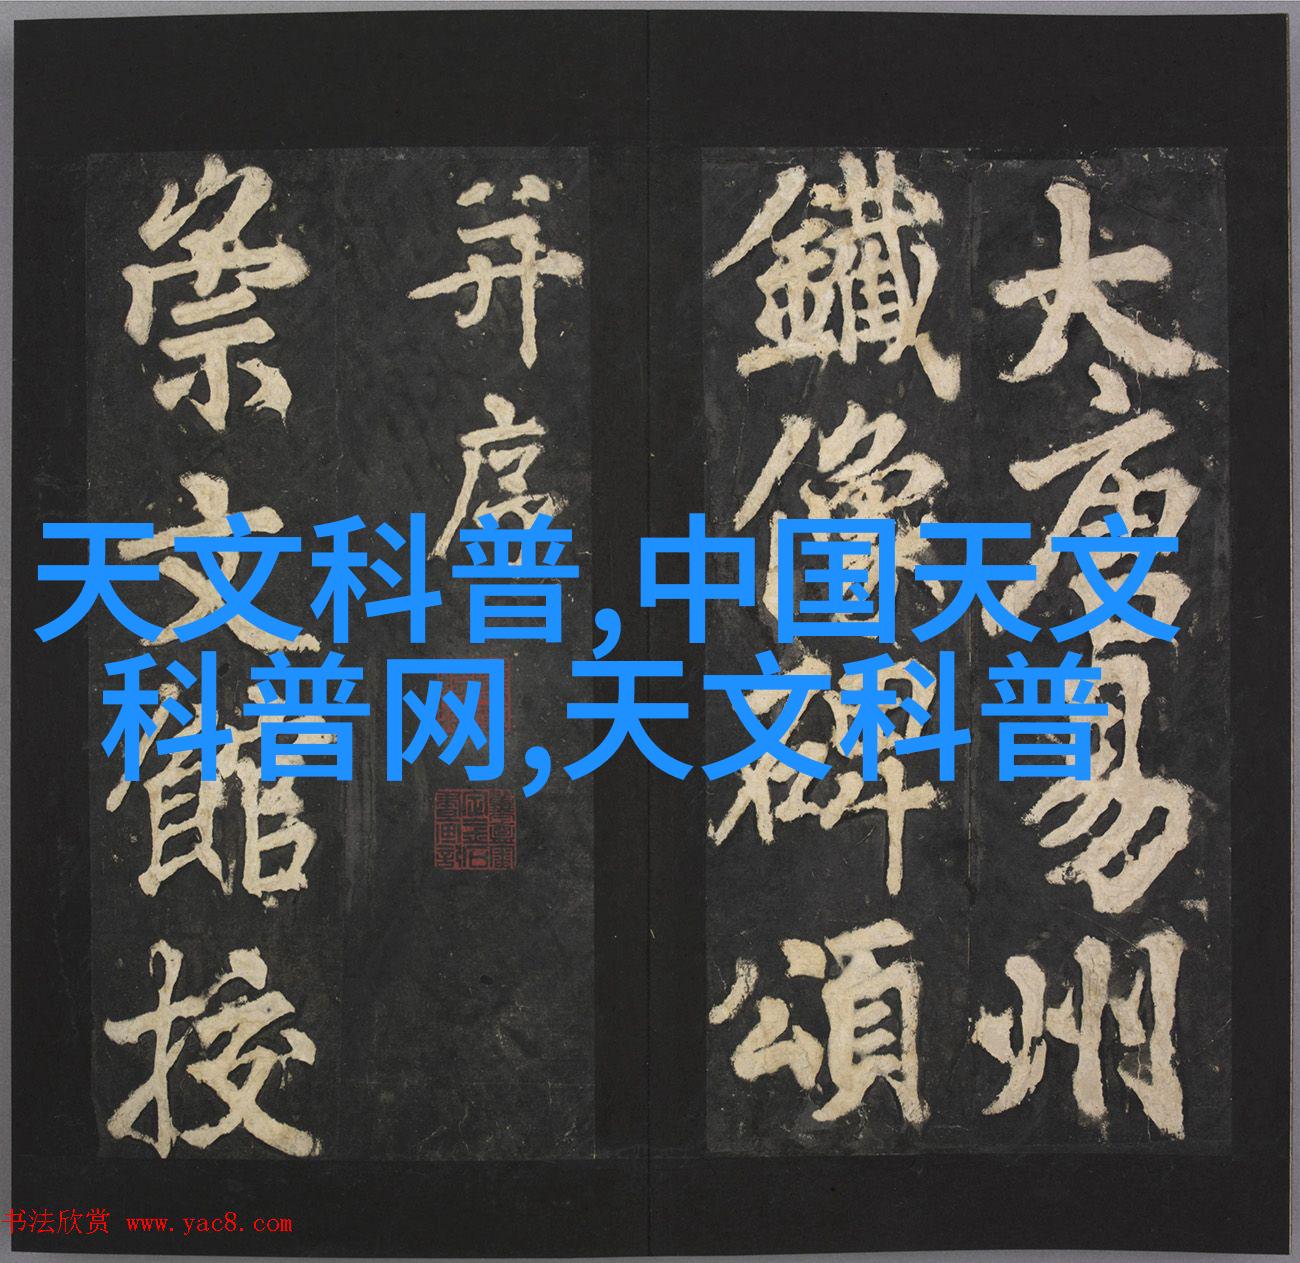 大唐易州
鐵像碑頌
并序
崇文館校
天文科普,中国天文
科普网,天文科普
书法欣赏 www.yac8.com